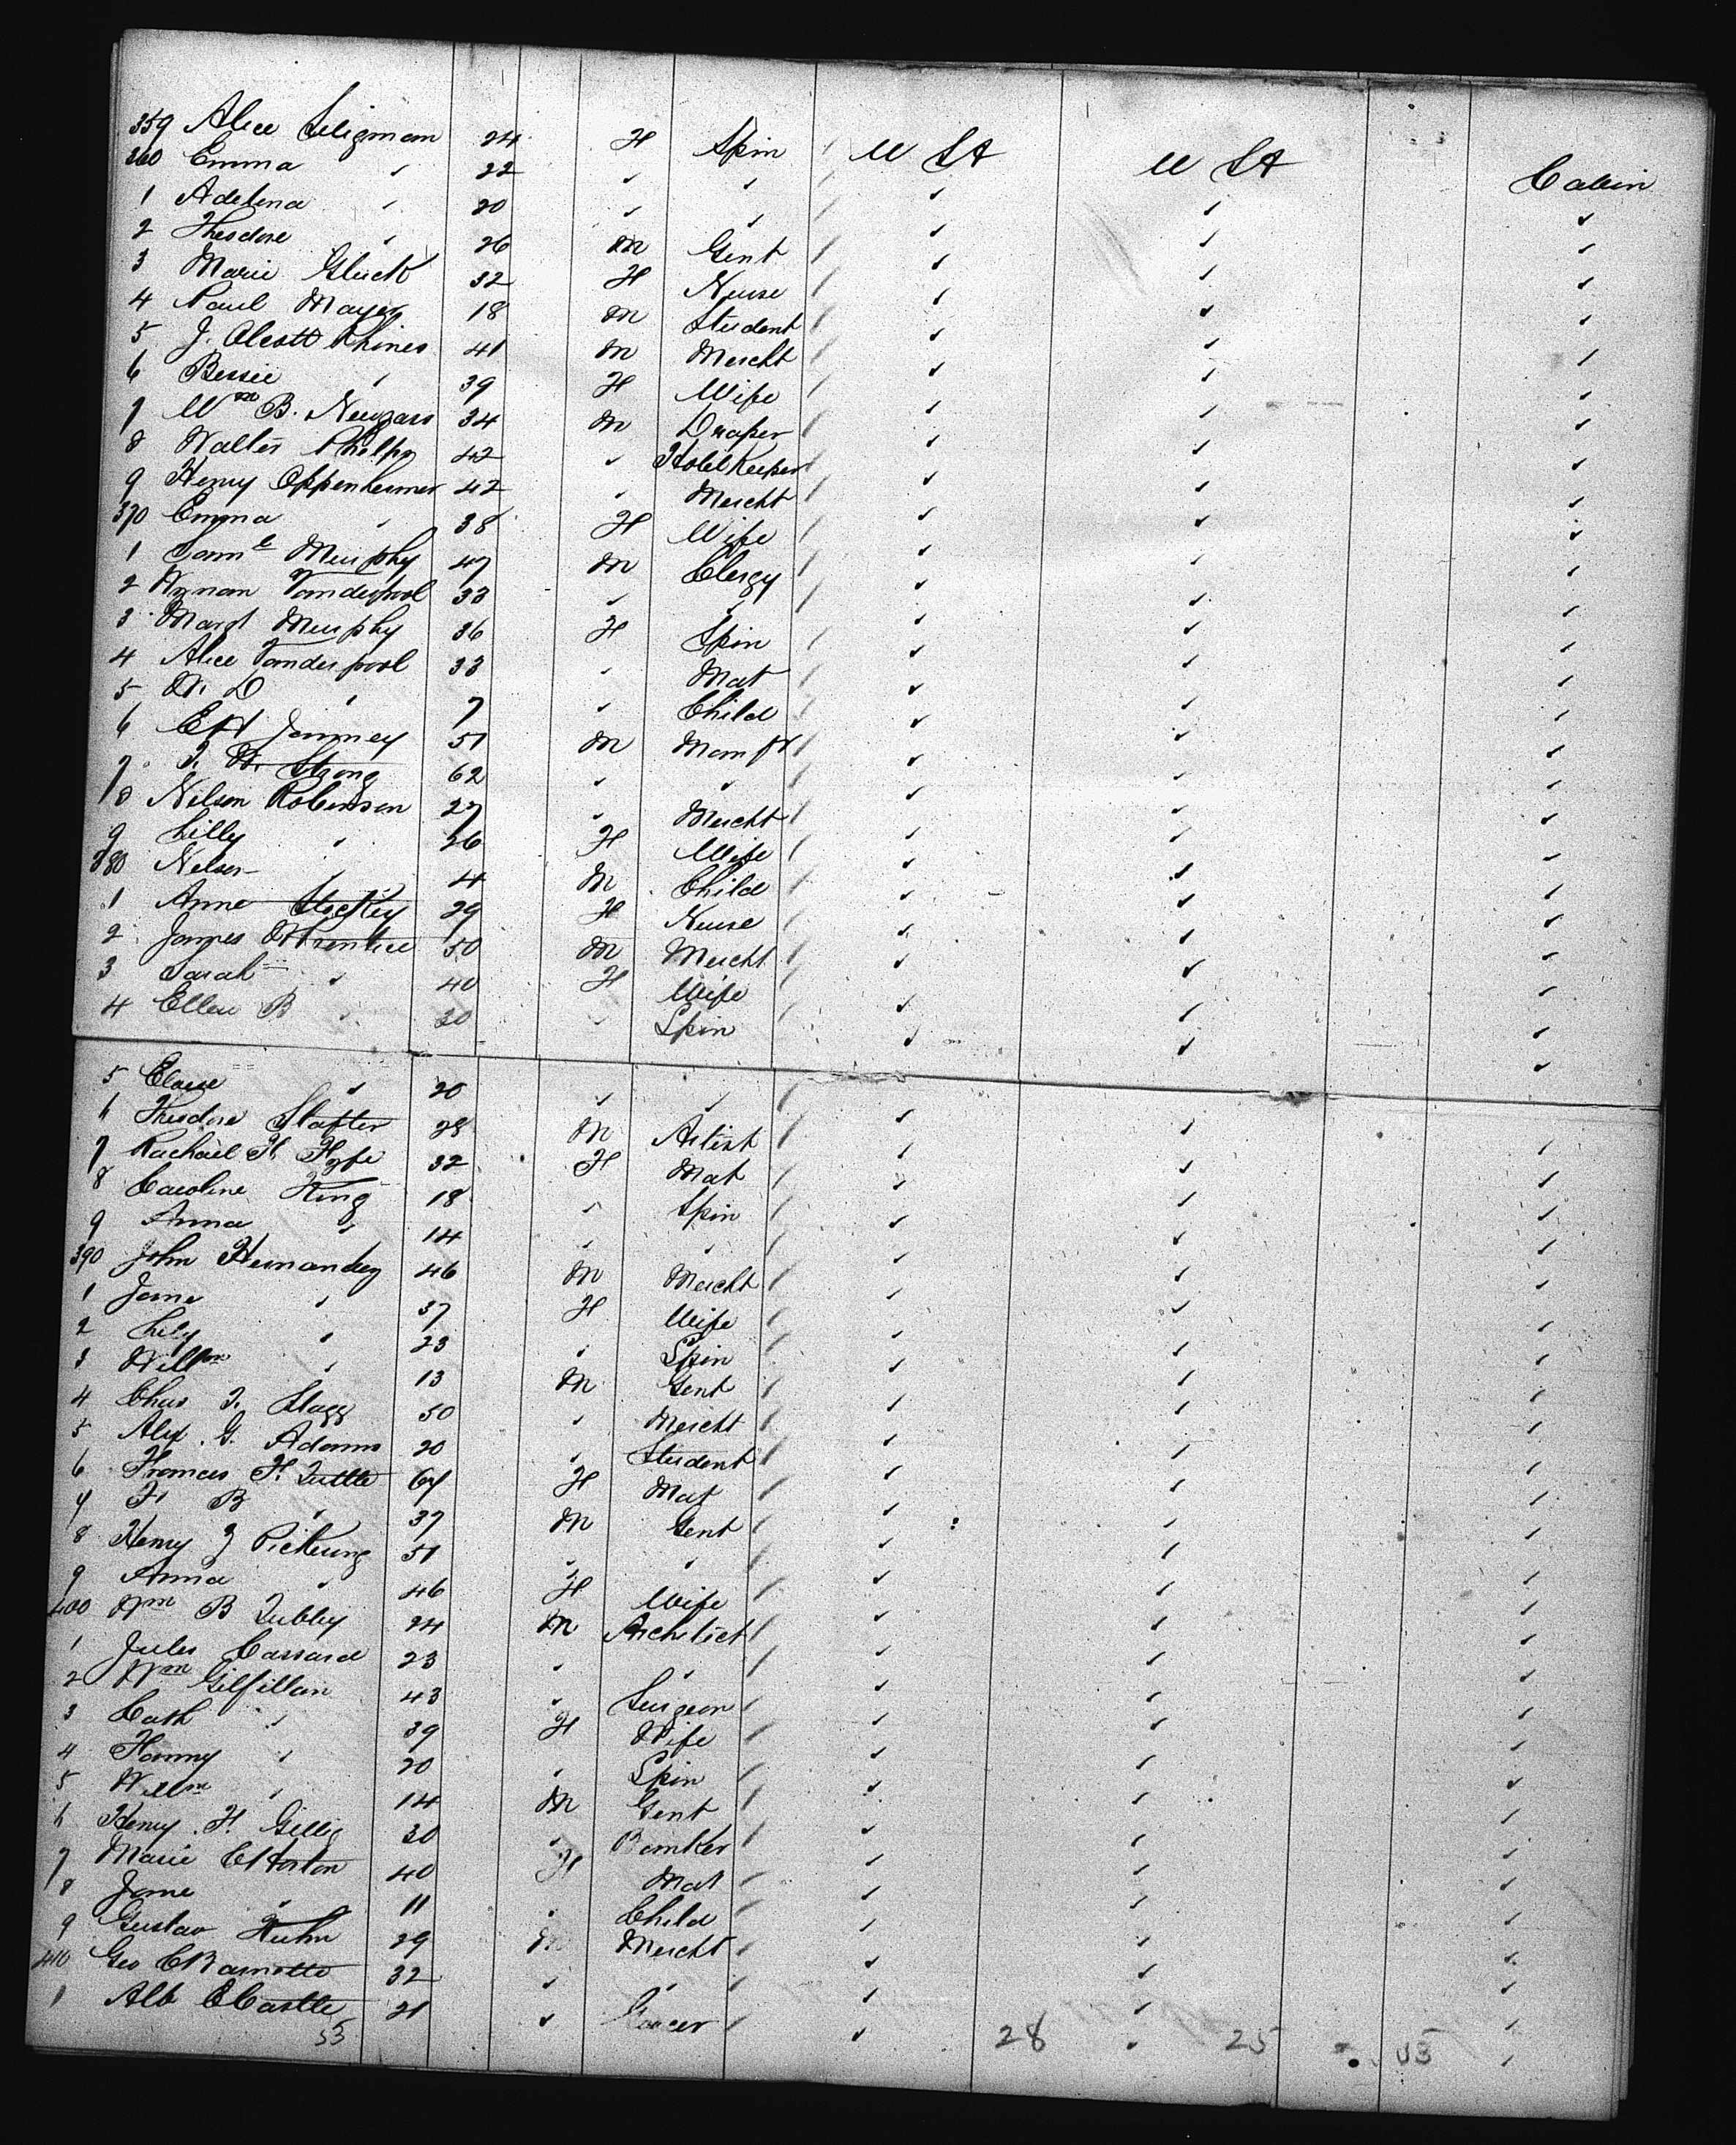 359 Alice Seligman 24 F Spin U St U St Cabin
360 Emma " 22 " " " " "
1 Adelina " 20 " " " " "
2 Theodore " 26 M Gent " " "
3 Marie Gluck 32 F Nurse " " "
4 Paul Mayer 18 M Student " " "
5 J. Alcott Rhines 41 M Mercht " " "
6 Bessie " 39 F Wife " " "
7 Wm B. 34 M Draper " " "
8 Walter Phelps 42 " Hotel Keeper " " "
9 Henry Oppenheimer 42 " Mercht " " "
370 Emma " 38 F Wife " " "
1 Saml Murphy 47 M Clergy " " "
2 Wynan Vanderpool 33 " " " " "
3 Margt Murphy 36 F Spin " " "
4 Alice Vanderpool 33 " Mat " " "
5 W. D " 7 " Child " " "
6 E H Janney 51 M Manfr " " "
7 T. W. Strong 62 " " " " "
8 Nelson Robinson 27 " Mercht " " "
9 Lilly " 26 F Wife " " "
380 Nelson " 4 M Child " " "
1 Anne Stockey 29 F Nurse " " "
2 James W Prentice 50 M Mercht " " "
3 Sarah " 40 F Wife " " "
4 Ellen B " 30 " Spin " " "
5 " 20 " " " " "
6 Theodore Slafter 28 M Artist " " "
7 Rachael H. Fyfe 32 F Mat " " "
8 Caroline King 18 " Spin " " "
9 Anna " 14 " " " " "
390 John Hernandez 46 M Mercht " " "
1 Jane " 37 F Wife " " "
2 Lily " 23 " Spin " " "
3 Willm " 13 M Gent " " "
4 Chas T. Stagg 50 " Mercht " " "
5 Alex. G. Adams 20 " Student " " "
6 Frances H. Tuttle 64 F Mat " " "
7 F B " 37 M Gent " " "
8 Henry J Pickering 51 " " " " "
9 Anna " 46 F Wife " " "
400 Wm B Tubby 24 M Architect " " "
1 Jules Cassard 23 " " " " "
2 Wm Gilfillan 43 " Surgeon " " "
3 Cath " 39 F Wife " " "
4 Fanny " 20 " Spin " " "
5 Willm " 14 M Gent " " "
6 Henry F. Gillig 30 " Banker " " "
7 Marie E Horton 40 F Mat " " "
8 Jane " 11 " Child " " "
9 Gustav Kuhn 29 M Mercht " " "
410 Geo C 32 " " " " "
1 Alb E Castle 21 " Grocer " " "
53 28 25 53